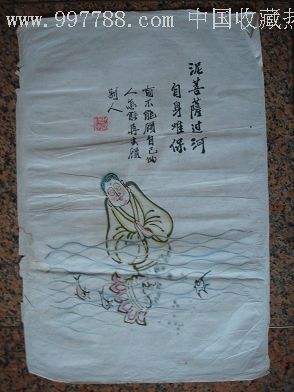 www.997788.com 中国收藏热
泥菩萨过河
自身难保
不能顾自己的
人怎能再去顾
别人